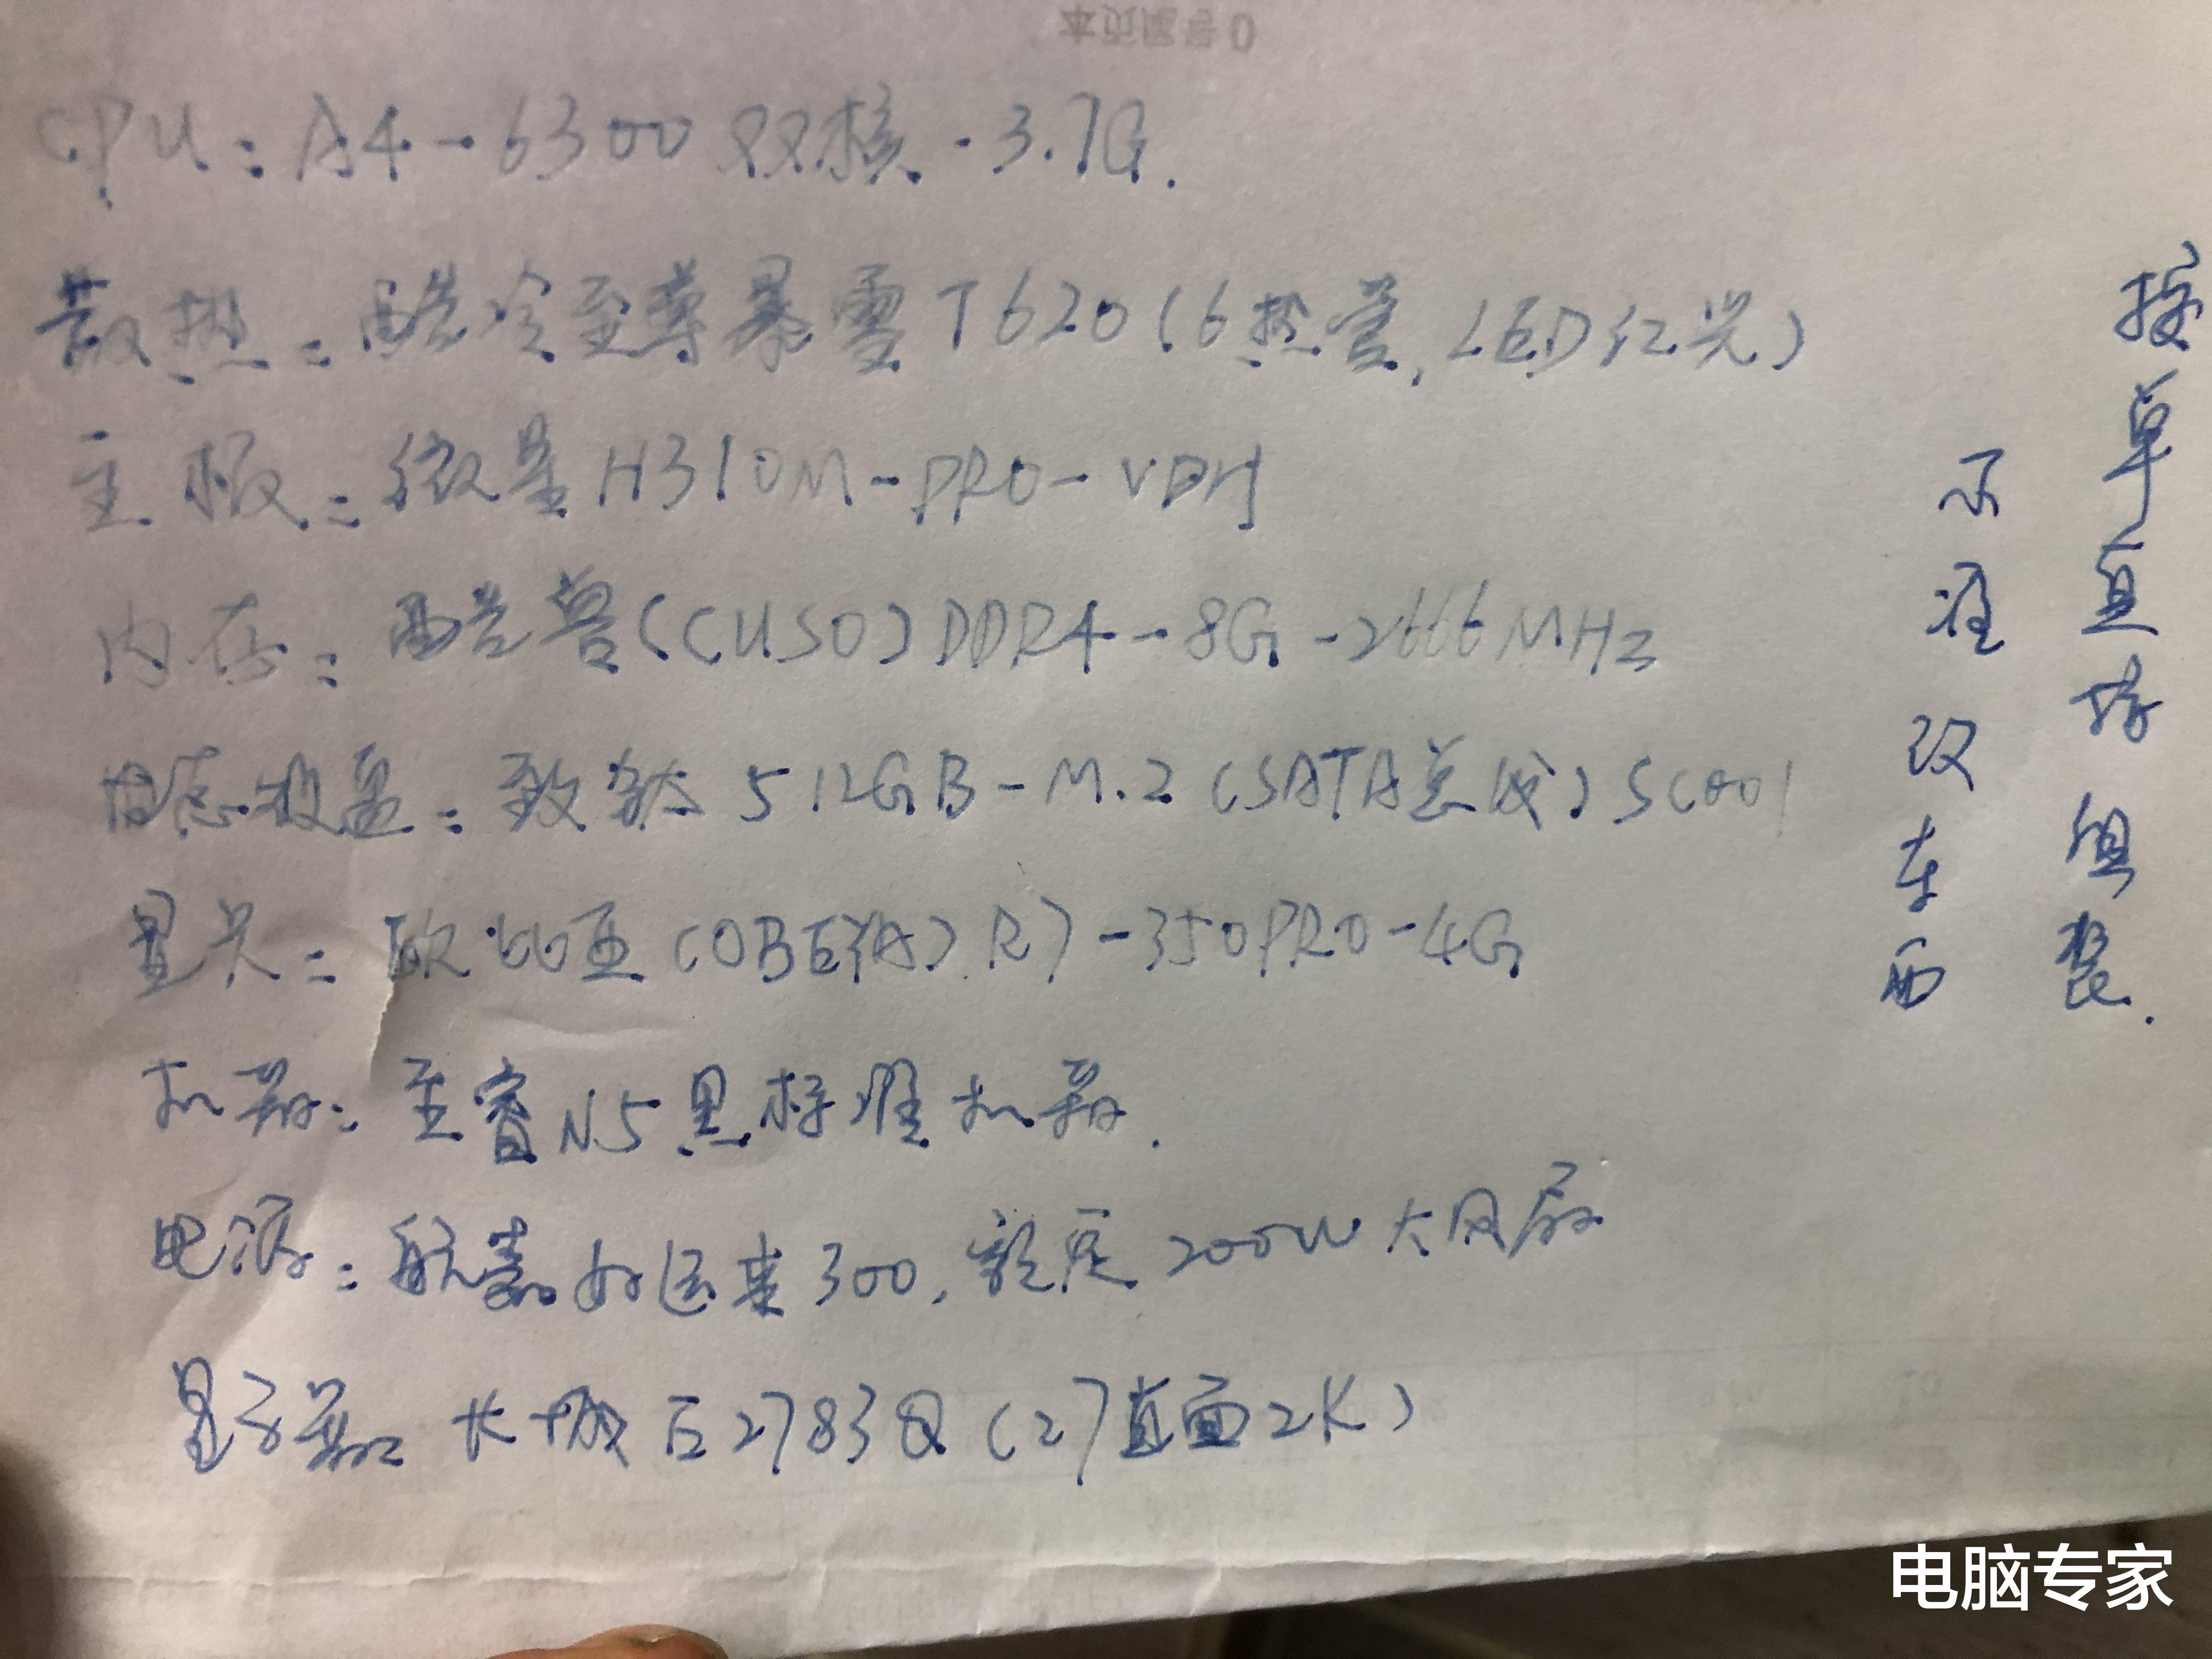 CPU：A4-6300双核·3.7G.
散热：酷冷至尊暴雪T620（6热管，LED红光）
主板：微星H310M-PRO-VDH
内存：酷兽（CUSO）DDR4-8G-2666MHz
固态硬盘：致钛512GB-M.2（SATA总线）SC001
显卡：欧比亚（OBEYA）R7-350PRO-4G
机箱：至睿N5黑标准机箱.
电源：航嘉好运来300，额定200W大风扇
显示器：长城 2783Q（27直面2K）
按单直接组装.
不准改东西
电脑专家